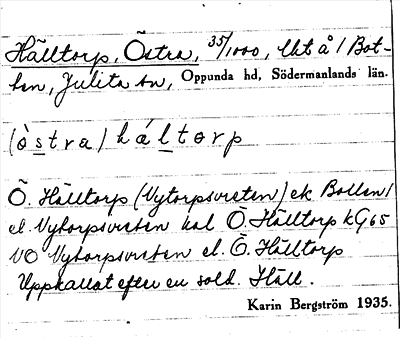 Hälltorp, Östra, 35/1000, Utå / Bot-
ten, Julita sn, Oppunda hd, Södermanlands län.
(ȯ s̲ t r a) h á l̲ t ɵ r p
Ö. Hälltorp (Nytorpsvreten) ek Botten/
el. Nytorpsvreten hal Ö Hälltorp kG 65
VO Nytorpsvreten el. Ö. Hälltorp
Uppkallat efter en sold. Häll.
Karin Bergström 1935.